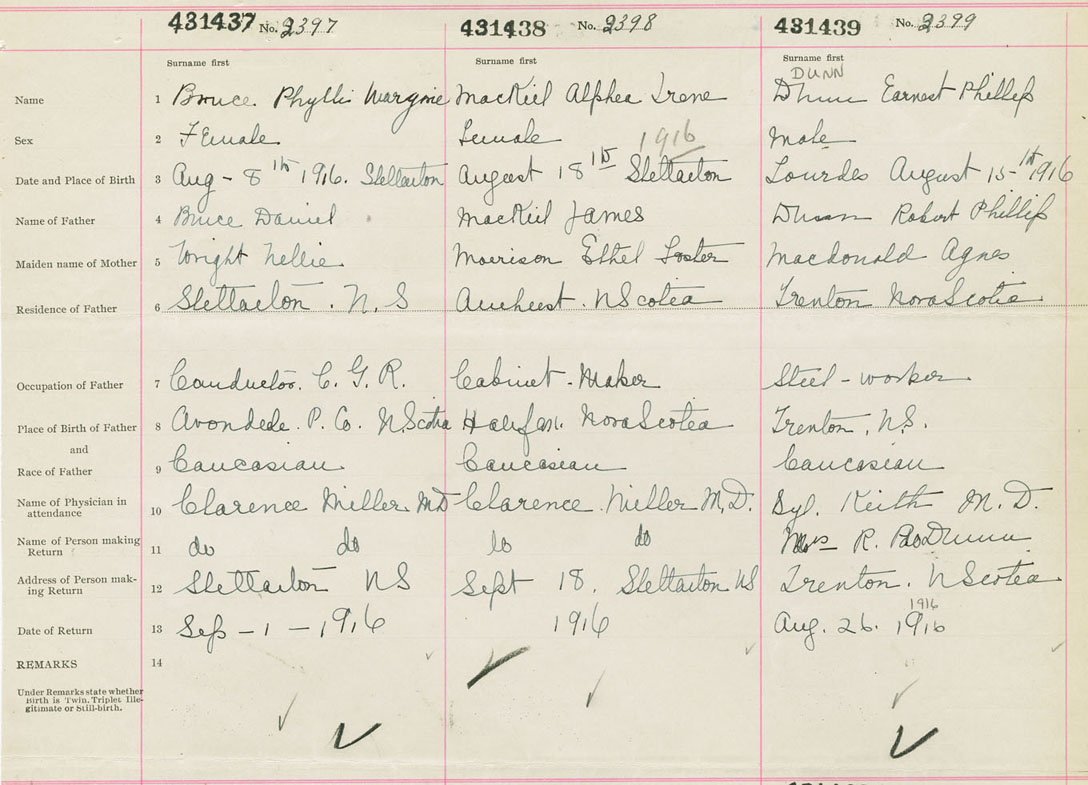 431437 No. 2397 431438 No. 2398 431439 No. 2399
Surname first Surname first Surname first
DUNN
Name 1 Bruce Phyllis Margorie MacKiel Alphea Irene Dunn Earnest Phillip
Sex 2 Female Female Male
1916
Date and Place of Birth 3 Aug - 8th 1916. Stellarton August 18th Stellarton Lourdes August 15th 1916
Name of Father 4 Bruce Daniel MacKiel James Dunn Robert Phillip
Maiden name of Mother 5 Wright Nellie Morrison Ethel Foster Macdonald Agnes
Residence of Father 6 Stellarton. N. S Amherst. NScotea Trenton NovaScotia
Occupation of Father 7 Conductor. C. G. R. Cabinet-Maker Steel-worker
Place of Birth of Father 8 Avondede. P. Co. N.Scotia Halifax. NovaScotea Trenton, N.S.
and
Race of Father 9 Caucasian Caucasian Caucasian
Name of Physician in
attendance 10 Clarence Miller MD Clarence Miller M.D. Syl. Keith M.D.
Name of Person making
Return 11 do do do do Mrs R. Dunn
Address of Person mak-
ing Return 12 Stellarton NS Sept 18. Stellarton NS Trenton. NScotea
1916
Date of Return 13 Sep - 1 - 1916 1916 Aug. 26. 1916
REMARKS 14
Under Remarks state whether
Birth is Twin, Triplet Ille-
gitimate or Still-birth.